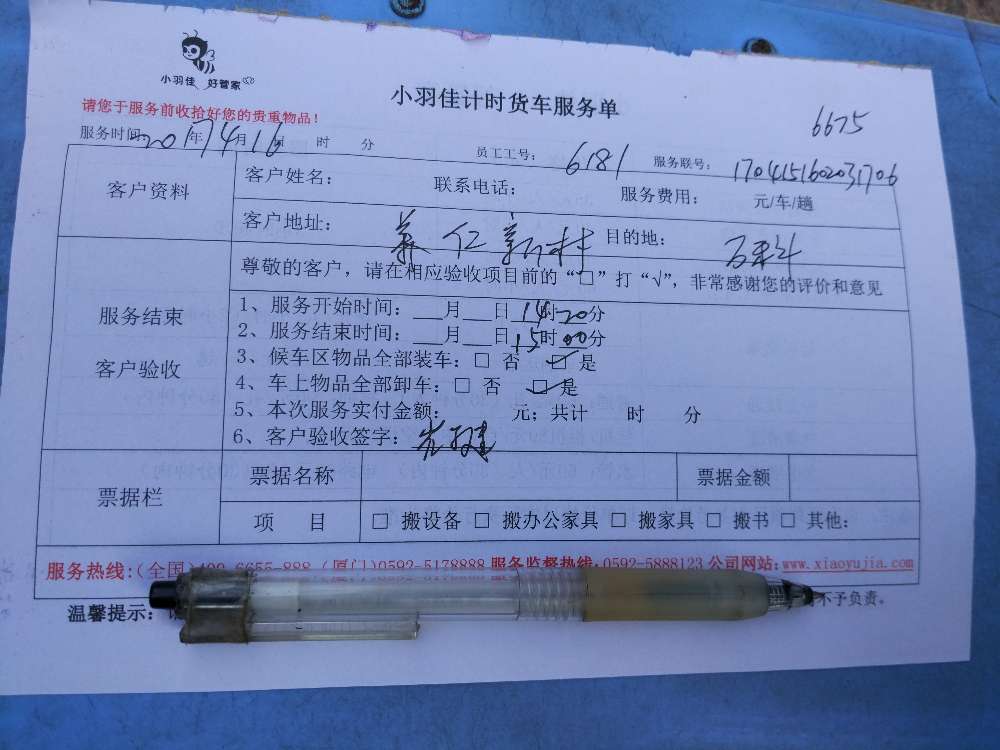 小羽佳 好管家
小羽佳计时货车服务单
6675
请您于服务前收拾好您的贵重物品！
服务时间 2017年4月16日 时 分 员工工号：6181 服务联号：1704151602031706
客户资料
客户姓名： 联系电话： 服务费用： 元/车/趟
客户地址： 仁新村 目的地：
服务结束
客户验收
尊敬的客户，请在相应验收项目前的“□”打“√”，非常感谢您的评价和意见
1、服务开始时间：___月___日14时20分
2、服务结束时间：___月___日15时00分
3、候车区物品全部装车：□ 否 ☑ 是
4、车上物品全部卸车：□ 否 ☑ 是
5、本次服务实付金额： 元；共计 时 分
6、客户验收签字：
票据栏
票据名称 票据金额
项 目 □ 搬设备 □ 搬办公家具 □ 搬家具 □ 搬书 □ 其他：
服务热线:(全国)400-6655-888 (厦门)0592-5178888 服务监督热线:0592-5888123 公司网站:www.xiaoyujia.com
温馨提示： 不予负责。